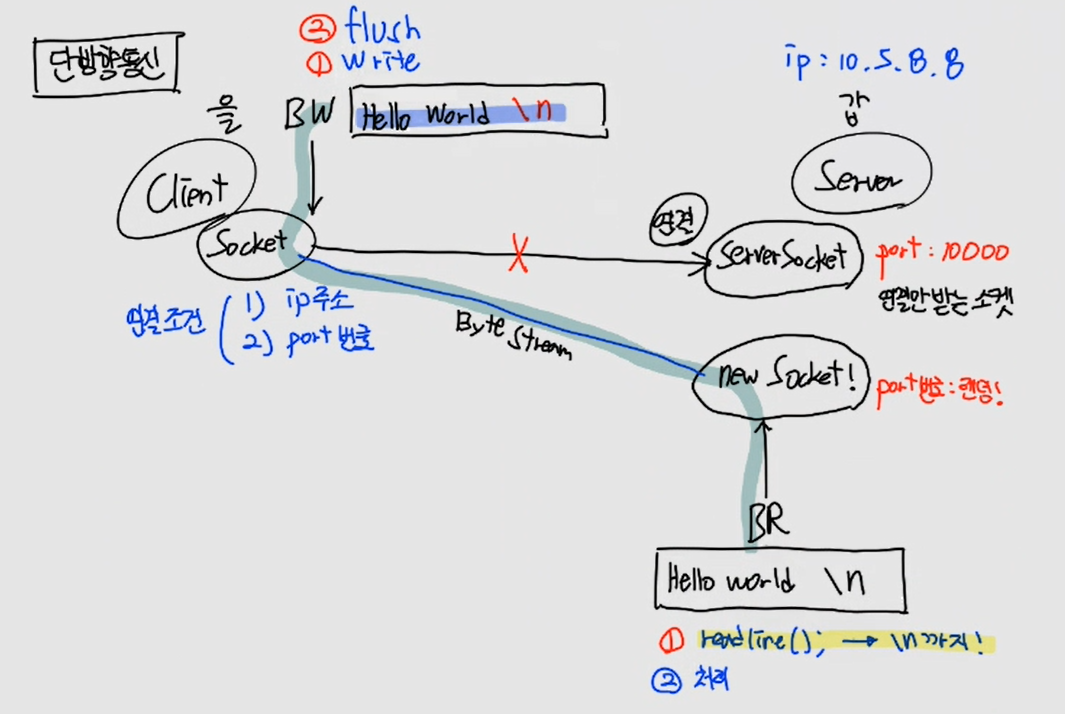 단방향통신
③ flush
① write
ip : 10.5.8.8
을
BW
Hello World \n
갑
Client
Server
Socket
연결
ServerSocket
port : 10000
연결만 받는 소켓
연결조건
1) ip주소
2) port 번호
Byte Stream
new Socket!
port번호 : 랜덤!
BR
Hello world \n
① readline(); → \n까지!
② 처리